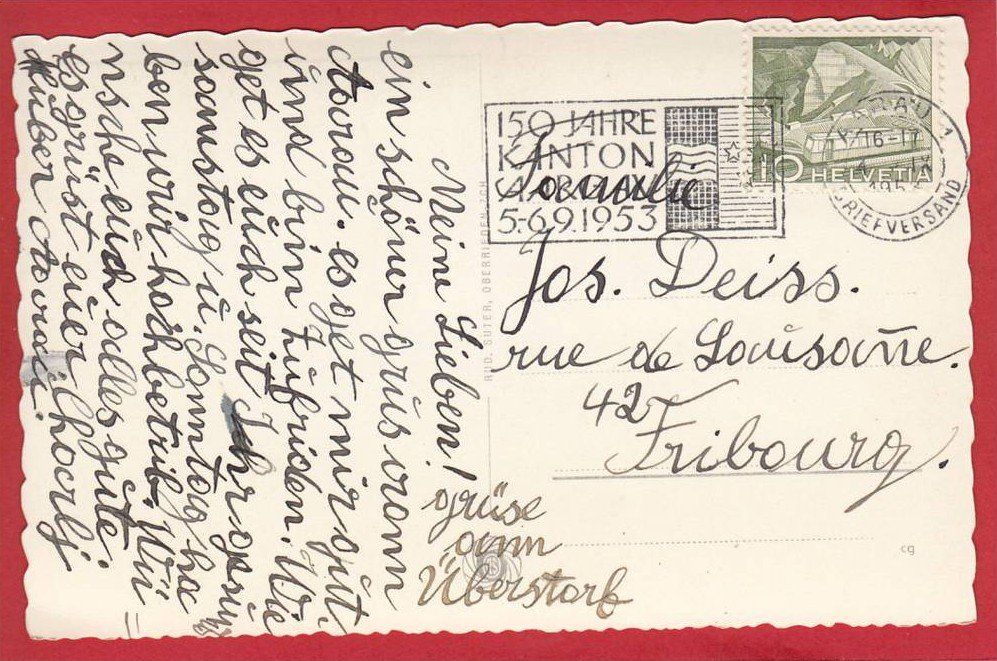 Meine Lieben!
ein schöner grüs vonn
Aarau. es get mir gut
und bin Zufriden. Wie
get es euch seit Ihr gesünd
samstag ü. Sonntag ha
ben wir hochbetrib. Wü
nsche euch alles gute.
es grüst euer
Huber Aarau.
grüse
ann
Überstorf
150 JAHRE
KANTON
AARGAU
5.-6.9.1953
AARAU 1
16-17
1953
BRIEFVERSAND
10 HELVETIA
Familie
Jos. Deiss.
rue de Lousanne.
42
Fribourg.
RUD. SUTER, OBERRIEDEN-ZCH
cg